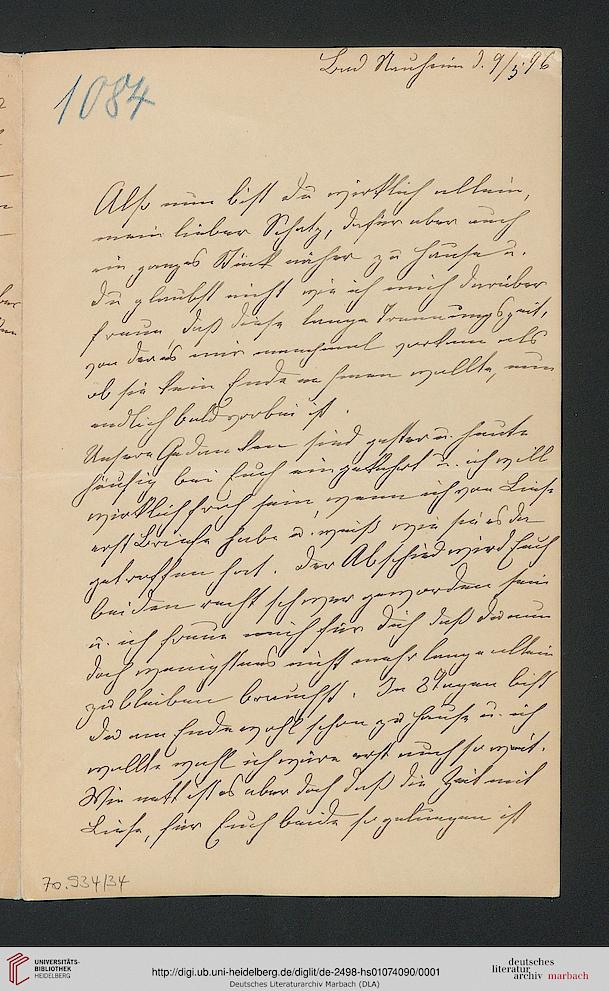 1084
Bad Nauheim d. 9/5. 96
Also nun bist Du wirklich allein,
mein lieber Schatz, dafür aber auch
ein ganzes Stück näher zu Hause u.
Du glaubst nicht wie ich mich darüber
freue daß diese lange Trennungszeit,
von der es mir manchmal vorkam als
ob sie kein Ende nehmen wollte, nun
endlich bald vorbei ist.
Unsere Gedanken sind gestern u. heute
häufig bei Euch eingekehrt u. ich will
wirklich froh sein, wenn ich von Liese
erst Briefe habe u. weiß wie sie es da
getroffen hat. Der Abschied wird Euch
beiden recht schwer geworden sein
u. ich freue mich für Dich daß Du nun
doch wenigstens nicht mehr lange allein
zu bleiben brauchst. In 8 Tagen bist
Du am Ende wohl schon zu Hause u. ich
wollte wohl ich wäre erst auch so weit.
Wie nett ist es aber doch daß die Zeit mit
Liese, für Euch beide so gelungen ist
70.934/34
UNIVERSITÄTS-
BIBLIOTHEK
HEIDELBERG
http://digi.ub.uni-heidelberg.de/diglit/de-2498-hs01074090/0001
Deutsches Literaturarchiv Marbach (DLA)
deutsches
literatur
archiv marbach